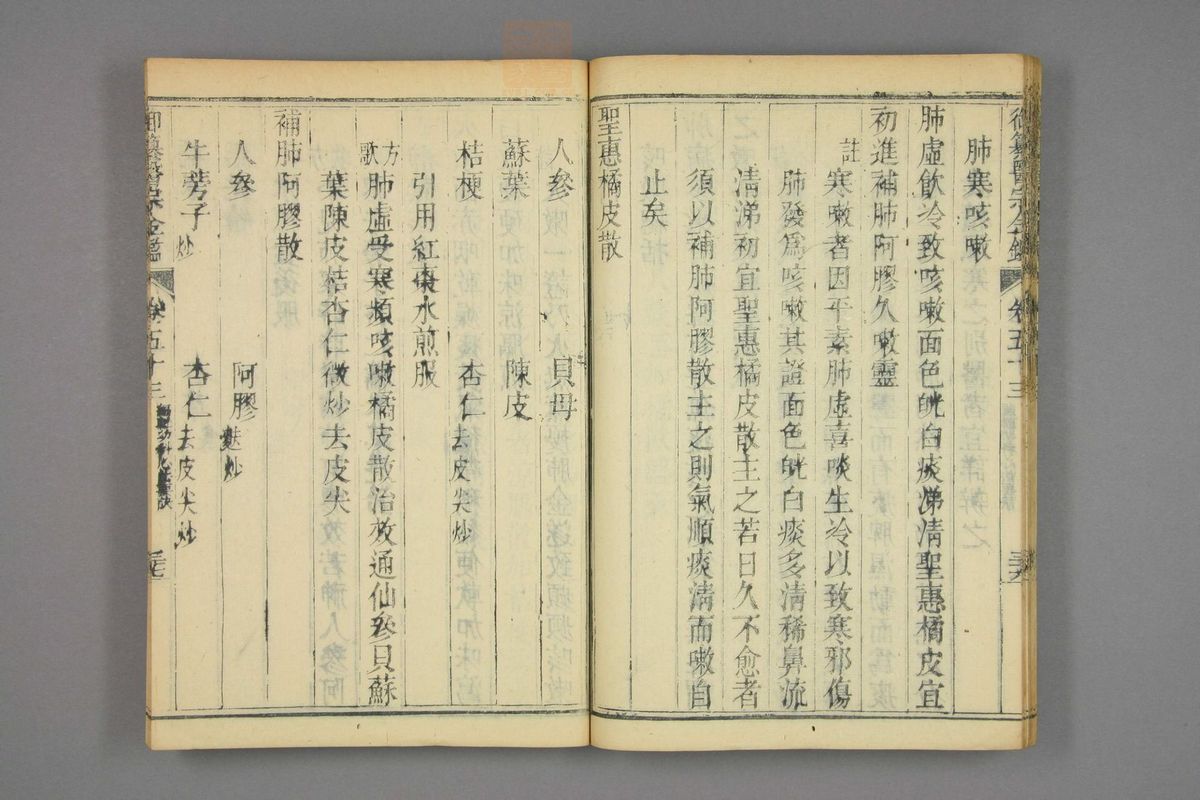 肺寒咳嗽
肺虛飲冷致咳嗽面色㿠白痰涕清聖惠橘皮宜
初進補肺阿膠久嗽靈
註
寒嗽者因平素肺虛喜啖生冷以致寒邪傷
肺發爲咳嗽其證面色㿠白痰多清稀鼻流
清涕初宜聖惠橘皮散主之若日久不愈者
須以補肺阿膠散主之則氣順痰清而嗽自
止矣
聖惠橘皮散
人參 貝母
蘇葉 陳皮
桔梗 杏仁去皮尖炒
引用紅棗水煎服
方歌
肺虛受寒頻咳嗽橘皮散治效通仙參貝蘇
葉陳皮桔杏仁微炒去皮尖
補肺阿膠散
人參 阿膠麩炒
牛蒡子炒 杏仁去皮尖炒
御纂醫宗金鑑 卷五十三